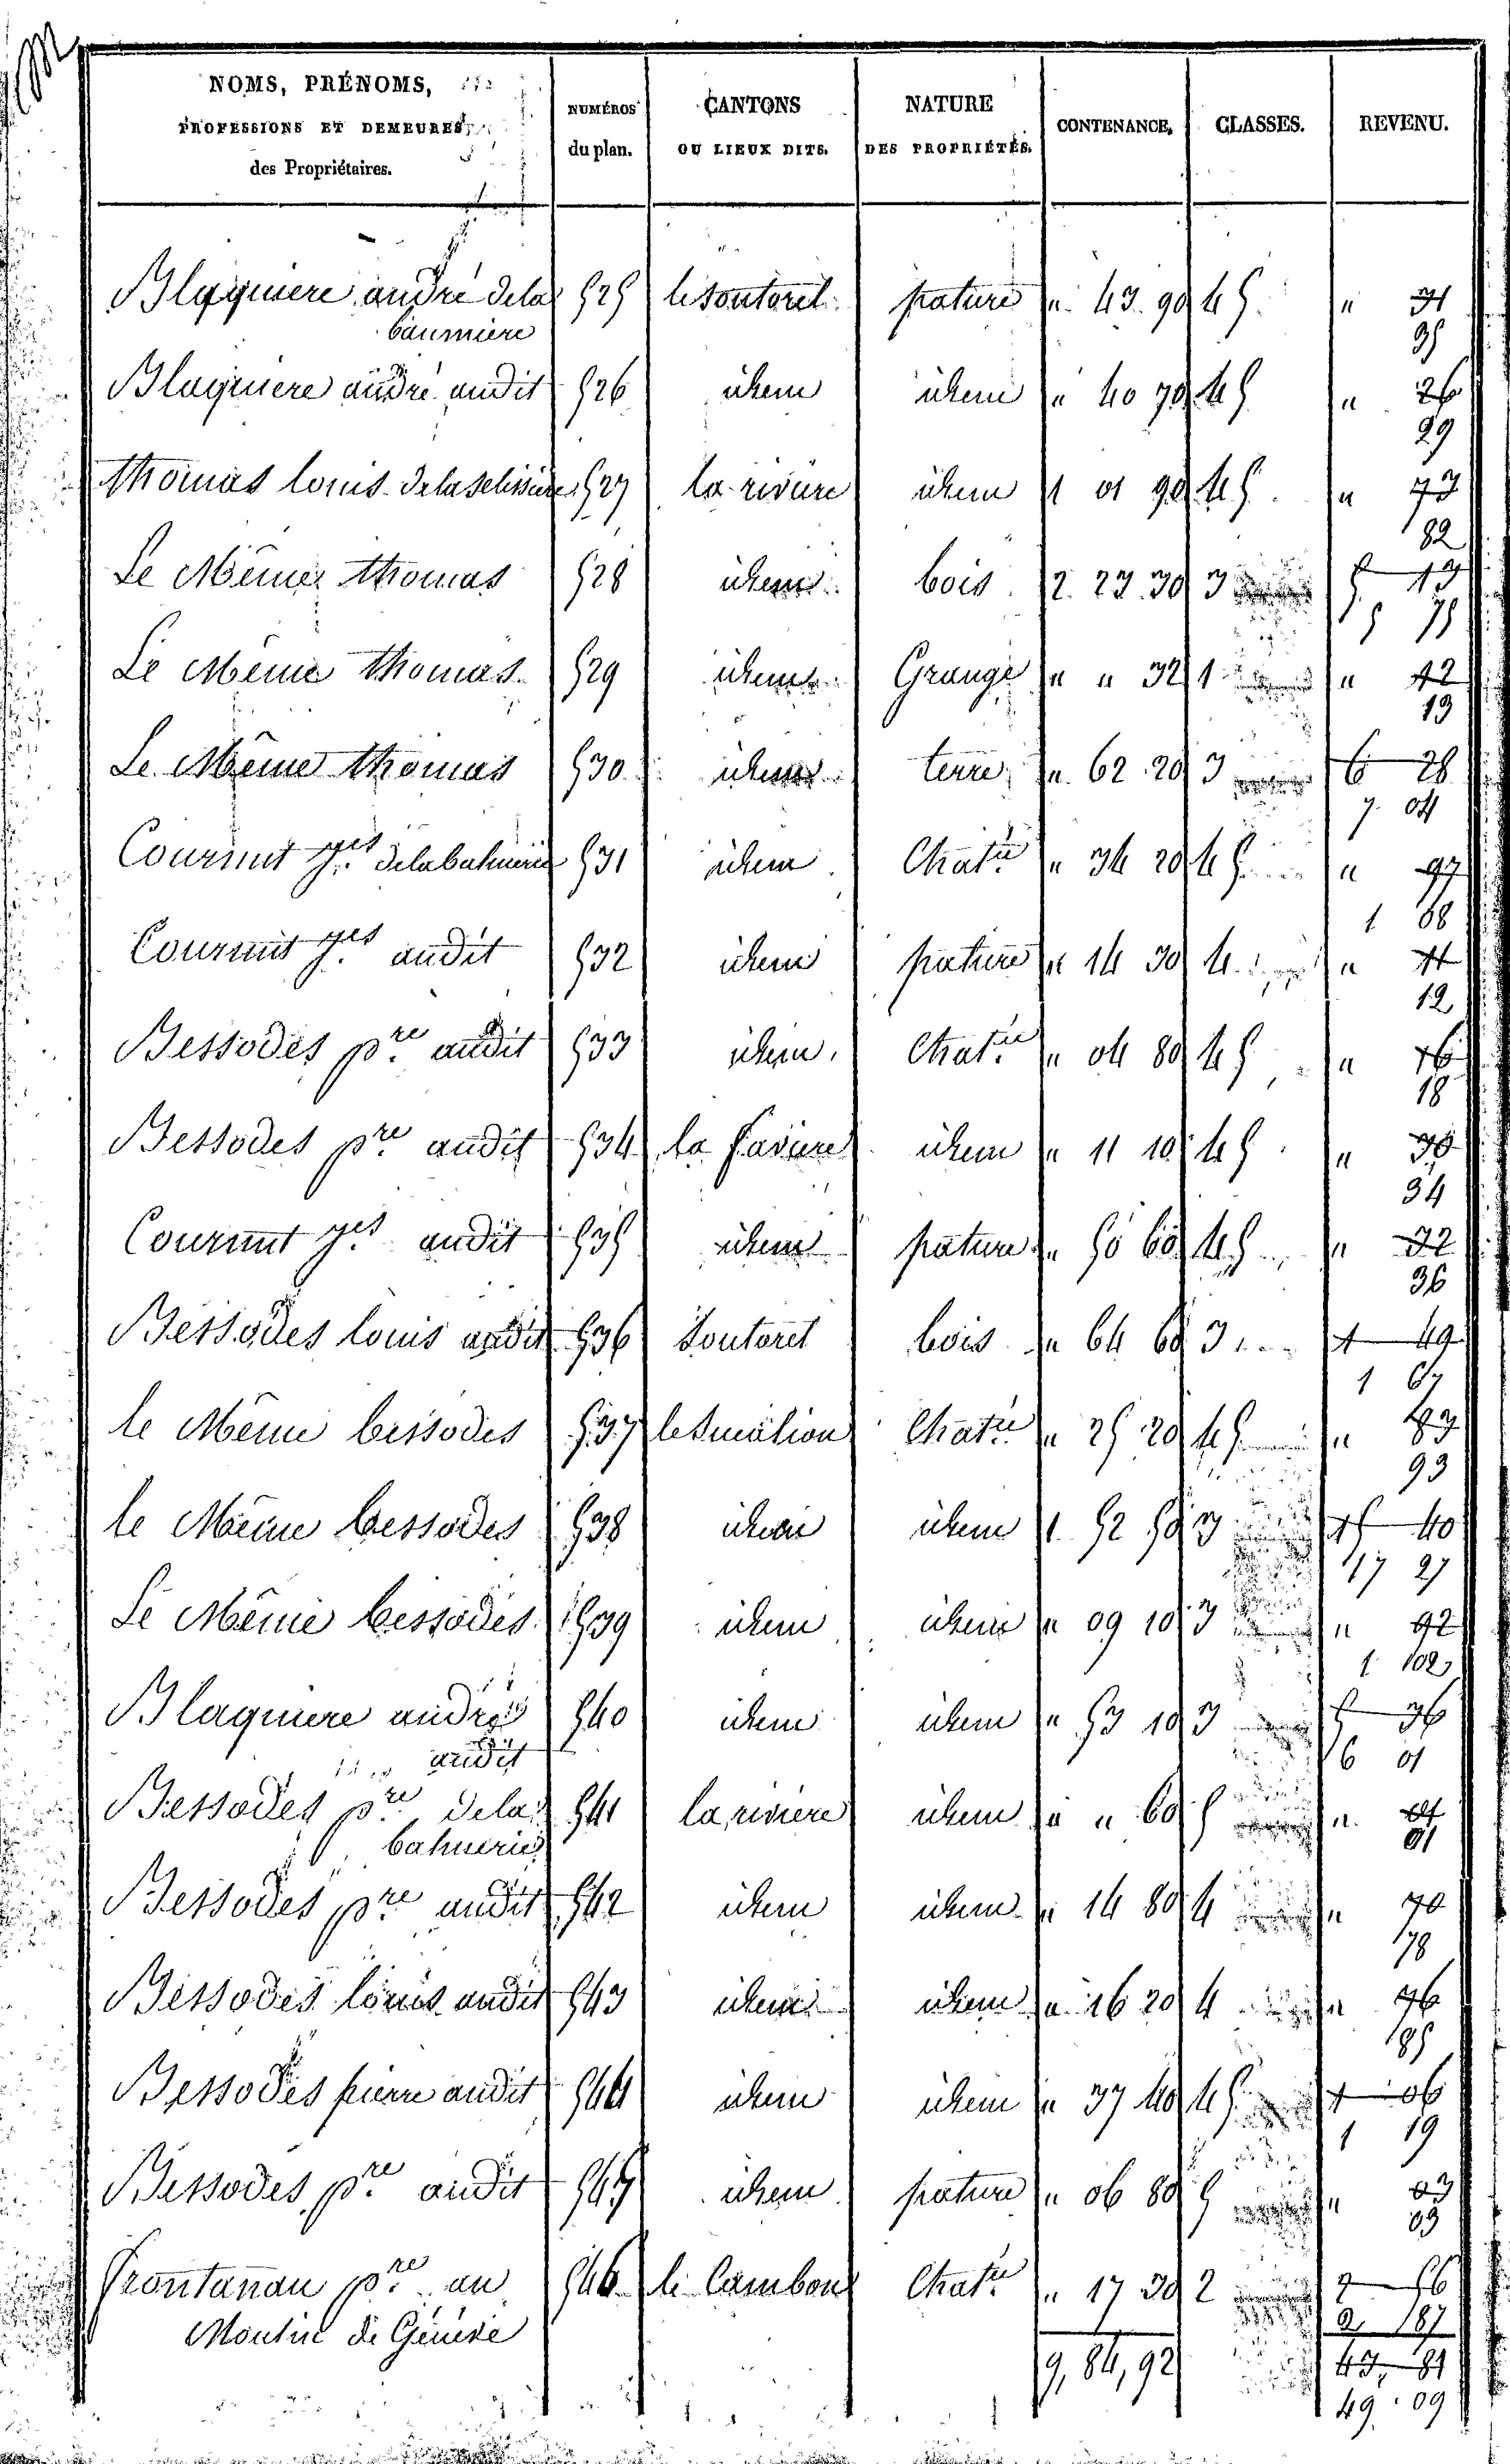 NOMS, PRÉNOMS,
PROFESSIONS ET DEMEURES
des Propriétaires.
NUMÉROS
du plan.
CANTONS
OU LIEUX DITS.
NATURE
DES PROPRIÉTÉS.
CONTENANCE.
CLASSES.
REVENU.
Blaquiere andré dela 525 le Soutoret pature " 43 90 4 5 " 31
baumiere 35
Blaquiere andré audit 526 idem idem " 40 70 4 5 " 26
29
thomas louis 527 la riviere idem 1 01 90 4 5 " 73
82
Le Même thomas 528 idem bois 2 23 30 3 5 13
5 75
Le Même thomas 529 idem Grange " " 32 1 " 12
13
Le Même thomas 530 idem terre " 62 20 3 6 28
7 04
Courant 531 idem Chatie " 34 20 4 5 " 97
1 08
Courant audit 532 idem pature " 14 30 4 " 11
12
Bessodes pre audit 533 idem Chatie " 04 80 4 5 " 16
18
Bessodes pre audit 534 idem " 11 10 4 5 " 30
34
Courant audit 535 idem pature " 50 60 4 5 " 32
36
Bessodes louis audit 536 Soutoret bois " 64 60 3 1 49
1 67
le Même bessodes 537 Chatie " 25 20 4 5 " 83
93
le Même bessodes 538 idem idem 1 52 50 3 15 40
17 27
Le Même bessodes 539 idem idem " 09 10 3 " 92
1 02
Blaquiere andré 540 idem idem " 53 10 3 5 36
audit 6 01
Bessodes pre dela 541 la riviere idem " " 60 5 " 01
01
Bessodes pre audit 542 idem idem " 14 80 4 " 70
78
Bessodes louis audit 543 idem idem " 16 20 4 " 76
85
Bessodes pierre audit 544 idem idem " 37 40 4 5 1 06
1 19
Bessodes pre audit 545 idem pature " 06 80 5 " 03
03
pre au 546 le Cambon Chatie " 17 30 2 2 56
Moulin de 2 87
9,84,92 43, 81
49. 09